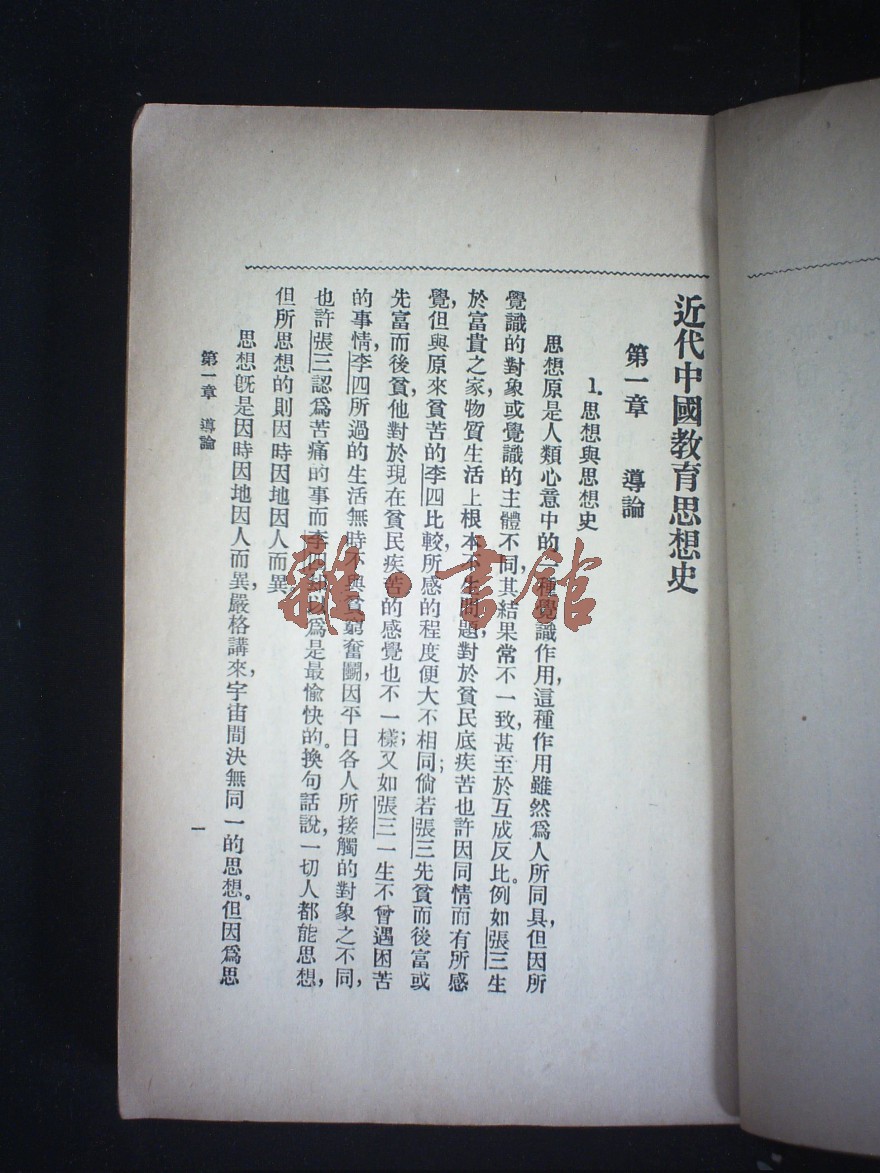 近代中國教育思想史
第一章　導論
1. 思想與思想史
思想原是人類心意中的一種覺識作用，這種作用雖然爲人所同具，但因所
覺識的對象或覺識的主體不同，其結果常不一致，甚至於互成反比。例如張三生
於富貴之家，物質生活上根本不生問題，對於貧民底疾苦也許因同情而有所感
覺，但與原來貧苦的李四比較，所感的程度便大不相同；倘若張三先貧而後富或
先富而後貧，他對於現在貧民疾苦的感覺也不一樣；又如張三一生不曾遇困苦
的事情，李四所過的生活無時不與貧窮奮鬭，因平日各人所接觸的對象之不同，
也許張三認爲苦痛的事而李四却以爲是最愉快的。換句話說，一切人都能思想，
但所思想的則因時因地因人而異。
思想旣是因時因地因人而異，嚴格講來，宇宙間決無同一的思想。但因爲思
第一章　導論
一
雜·書館